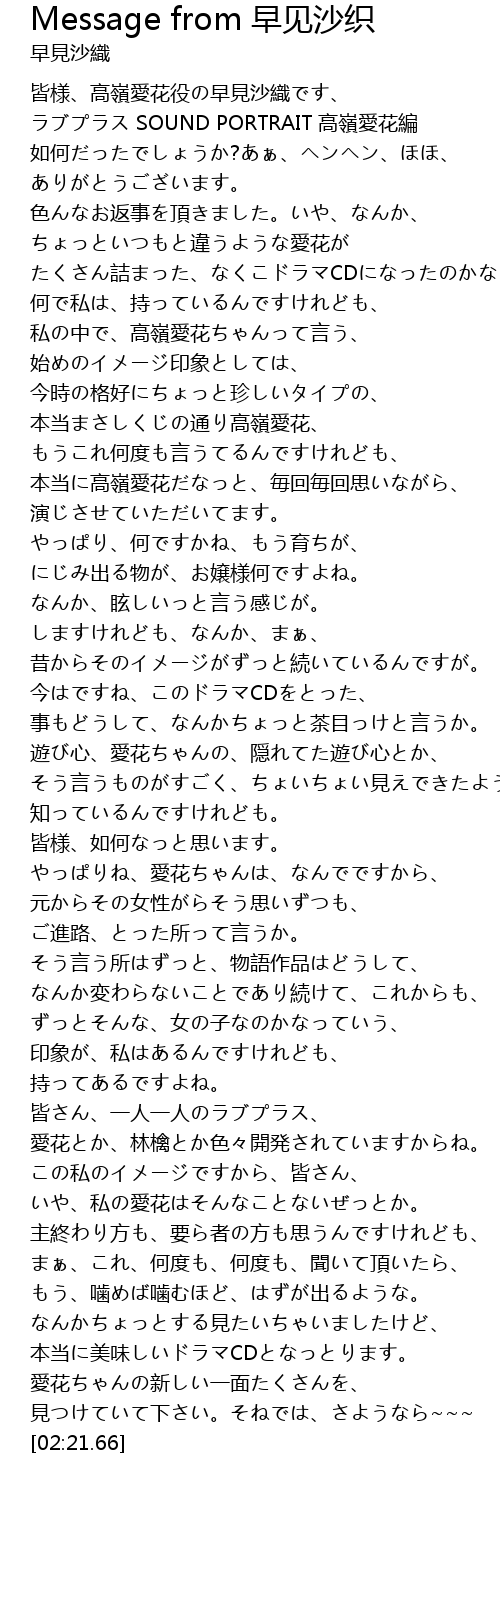 Message from 早见沙织
早見沙織
皆様、高嶺愛花役の早見沙織です、
ラブプラス SOUND PORTRAIT 高嶺愛花編
如何だったでしょうか?あぁ、ヘンヘン、ほほ、
ありがとうございます。
色んなお返事を頂きました。いや、なんか、
ちょっといつもと違うような愛花が
たくさん詰まった、なくこドラマCDになったのかな
何で私は、持っているんですけれども、
私の中で、高嶺愛花ちゃんって言う、
始めのイメージ印象としては、
今時の格好にちょっと珍しいタイプの、
本当まさしくじの通り高嶺愛花、
もうこれ何度も言うてるんですけれども、
本当に高嶺愛花だなっと、毎回毎回思いながら、
演じさせていただいてます。
やっぱり、何ですかね、もう育ちが、
にじみ出る物が、お嬢様何ですよね。
なんか、眩しいっと言う感じが。
しますけれども、なんか、まぁ、
昔からそのイメージがずっと続いているんですが。
今はですね、このドラマCDをとった、
事もどうして、なんかちょっと茶目っけと言うか。
遊び心、愛花ちゃんの、隠れてた遊び心とか、
そう言うものがすごく、ちょいちょい見えできたよう
知っているんですけれども。
皆様、如何なっと思います。
やっぱりね、愛花ちゃんは、なんでですから、
元からその女性がらそう思いずつも、
ご進路、とった所って言うか。
そう言う所はずっと、物語作品はどうして、
なんか変わらないことであり続けて、これからも、
ずっとそんな、女の子なのかなっていう、
印象が、私はあるんですけれども、
持ってあるですよね。
皆さん、一人一人のラブプラス、
愛花とか、林檎とか色々開発されていますからね。
この私のイメージですから、皆さん、
いや、私の愛花はそんなことないぜっとか。
主終わり方も、要ら者の方も思うんですけれども、
まぁ、これ、何度も、何度も、聞いて頂いたら、
もう、噛めば噛むほど、はずが出るような。
なんかちょっとする見たいちゃいましたけど、
本当に美味しいドラマCDとなっとります。
愛花ちゃんの新しい一面たくさんを、
見つけていて下さい。そねでは、さようなら~~~
[02:21.66]